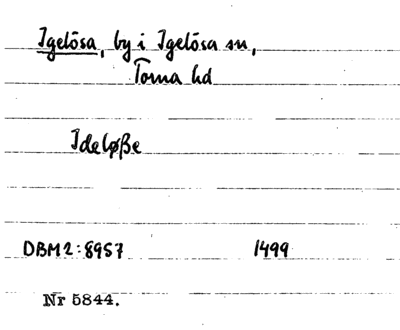 Igelösa, by i Igelösa sn,
Torna hd
Ideløße
DBM2:8957 1499
Nr 5844.